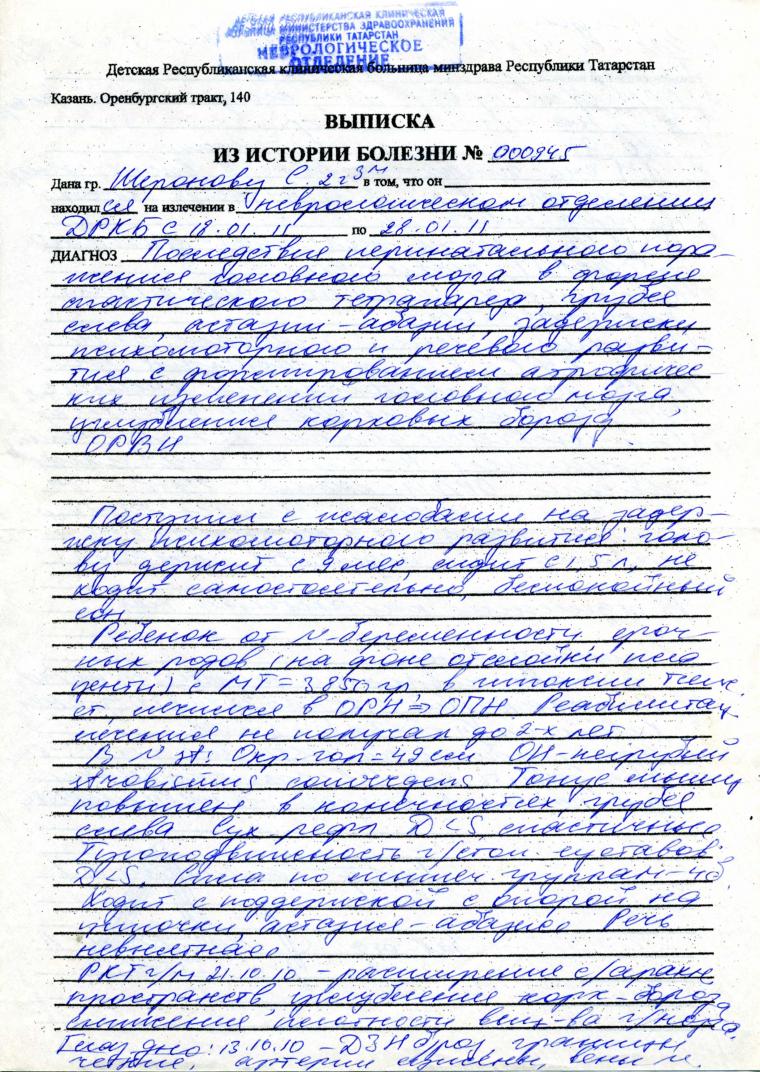 ДЕТСКАЯ РЕСПУБЛИКАНСКАЯ КЛИНИЧЕСКАЯ
БОЛЬНИЦА МИНИСТЕРСТВА ЗДРАВООХРАНЕНИЯ
РЕСПУБЛИКИ ТАТАРСТАН
НЕВРОЛОГИЧЕСКОЕ
ОТДЕЛЕНИЕ
Детская Республиканская клиническая больница минздрава Республики Татарстан
Казань. Оренбургский тракт, 140
ВЫПИСКА
ИЗ ИСТОРИИ БОЛЕЗНИ № 000945
Дана гр. Шеронову С 2г3м в том, что он
находился на излечении в неврологическом отделении
ДРКБ с 18.01.11 по 28.01.11
ДИАГНОЗ Последствия перинатального пора-
жения головного мозга в форме
спастического тетрапареза, грубее
слева, астазии-абазии, задержки
психомоторного и речевого разви-
тия с формированием атрофичес-
ких изменений головного мозга,
углубления корковых борозд
ОРВИ
Поступил с жалобами на задер-
жку психомоторного развития: голо-
ву держит с 9 мес, сидит с 1,5 л, не
ходит самостоятельно, беспокойный
сон
Ребенок от беременности, сроч-
ных родов (на фоне отслойки плац
енты) с МТ=3850гр, в
лечился в ОРН⇒ОПН. Реабилитац
лечения не получал до 2-х лет
В N St: Окр-гол=49см ОН-негрубый
strabismus convergens Тонус мышц
повышен в конечностях, грубее
слева Сух рефл D<S, спастичные
Тугоподвижность г/стоп суставов
D<S. Сила по мышеч группам-4б
Ходит с поддержкой с опорой на
астазия-абазия Речь
невнятная
РКТ г/м 21.10.10 - расширение с/арахн
пространств, углубление корк-борозд
снижение плотности вещ-ва г/мозга.
Глаз дно: 13.10.10 - ДЗН б/роз границы
четкие, артерии сужены, вены